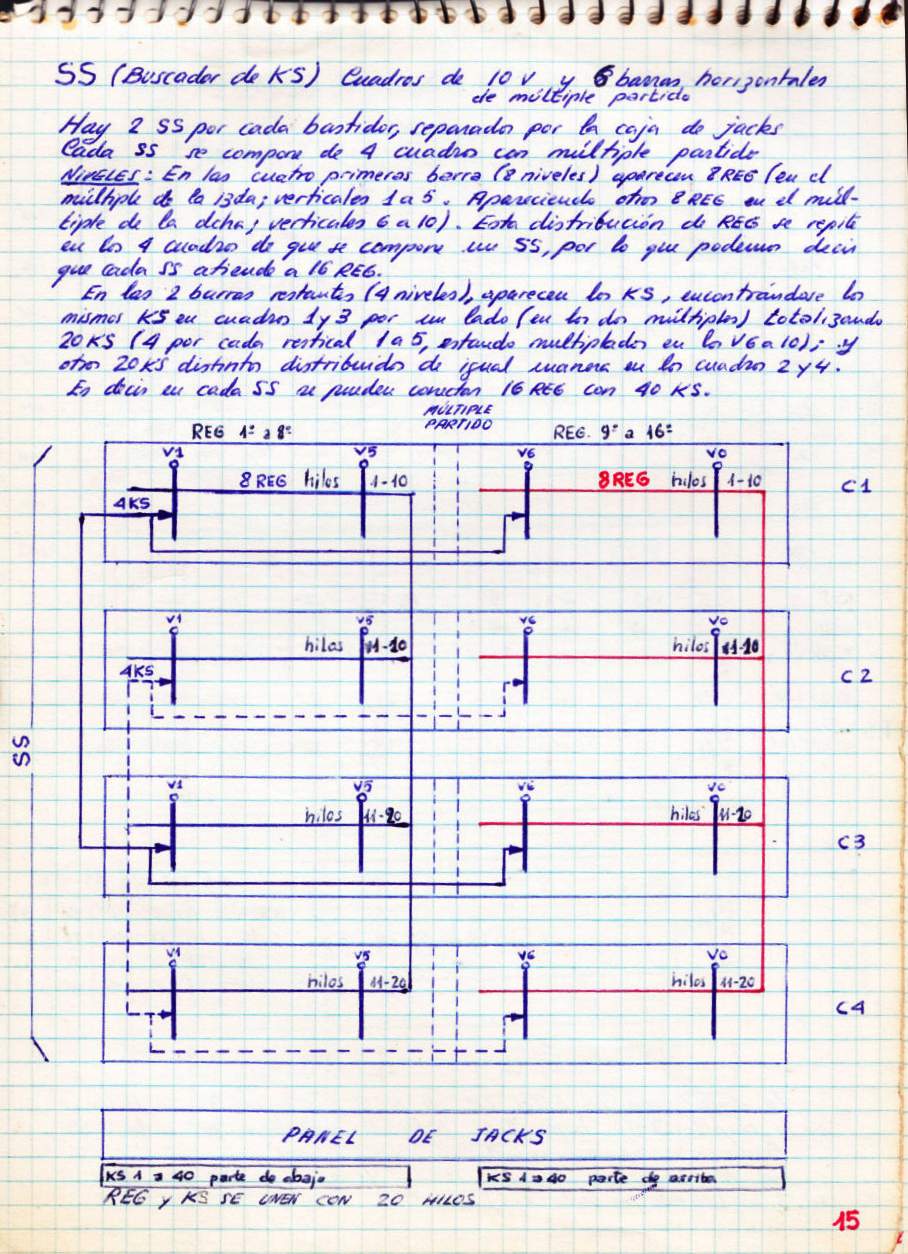 SS (Buscador de KS) Cuadros de 10 V y 6 barras horizontales
de múltiple partido
Hay 2 SS por cada bastidor, separados por la caja de jacks
Cada SS se compone de 4 cuadros con múltiple partido
NIVELES: En las cuatro primeras barra (8 niveles) aparecen 8 REG (en el
múltiple de la izda; verticales 1 a 5. Apareciendo otros 8 REG en el múl-
tiple de la dcha; verticales 6 a 10). Esta distribución de REG se repite
en los 4 cuadros de que se compone un SS, por lo que podemos decir
que cada SS atiende a 16 REG.
En las 2 barras restantes (4 niveles), aparecen los KS, encontrándose los
mismos KS en cuadros 1 y 3 por un lado (en los dos múltiplos) totalizando
20 KS (4 por cada vertical 1 a 5, estando multiplados en los V6 a 10); y
otros 20 KS distintos distribuidos de igual manera en los cuadros 2 y 4.
Es decir en cada SS se pueden conectar 16 REG con 40 KS.
MÚLTIPLE
PARTIDO
REG 1º a 8º REG. 9º a 16º
V1 V5 V6 V0
8 REG hilos 1-10 8 REG hilos 1-10 C1
4KS
V1 V5 V6 V0
hilos 1-10 hilos 1-10
4KS C2
SS
V1 V5 V6 V0
hilos 11-20 hilos 11-20
C3
V1 V5 V6 V0
hilos 11-20 hilos 11-20
C4
PANEL DE JACKS
KS 1 a 40 parte de abajo KS 1 a 40 parte de arriba
REG y KS SE UNEN CON 20 HILOS
15